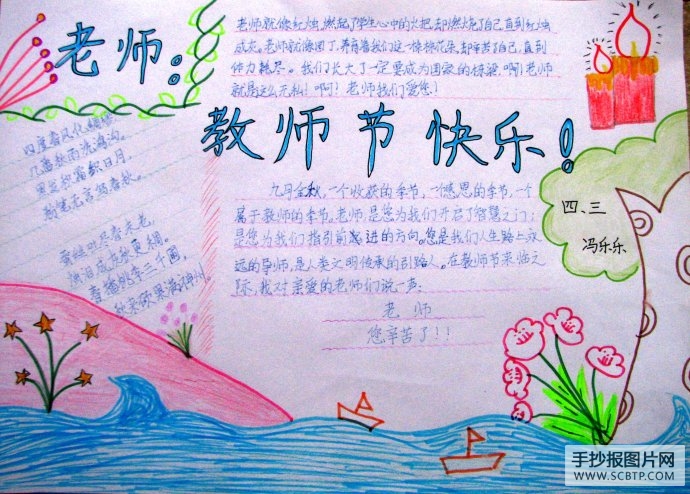 老师:
老师就像红烛,燃起了学生心中的火把,却燃烧了自己直到红烛
成灰。老师就像园丁,养育着我们这一棵棵花朵,却辛苦自己,直到
体力耗尽。我们长大了一定要成为国家的栋梁,啊!老师
就是这么无私!啊!老师我们爱您!
教师节快乐!
四度春风化绸缪
几番秋雨洗鸿沟。
黑发积霜织日月,
粉笔无言写春秋。
春蚕吐尽春未老,
烛泪成灰秋更稠。
春播桃李三千圃,
秋来硕果满神州。
九月金秋,一个收获的季节,一个感恩的季节,一个
属于教师的季节。老师,是您为我们开启了智慧之门;
是您为我们指引前进的方向。您是我们人生路上永
远的导师,是人类文明传承的引路人。在教师节来临之
际,我对亲爱的老师们说一声:
老师
您辛苦了!!
四、三
冯乐乐
手抄报图片网
WWW.SCBTP.COM